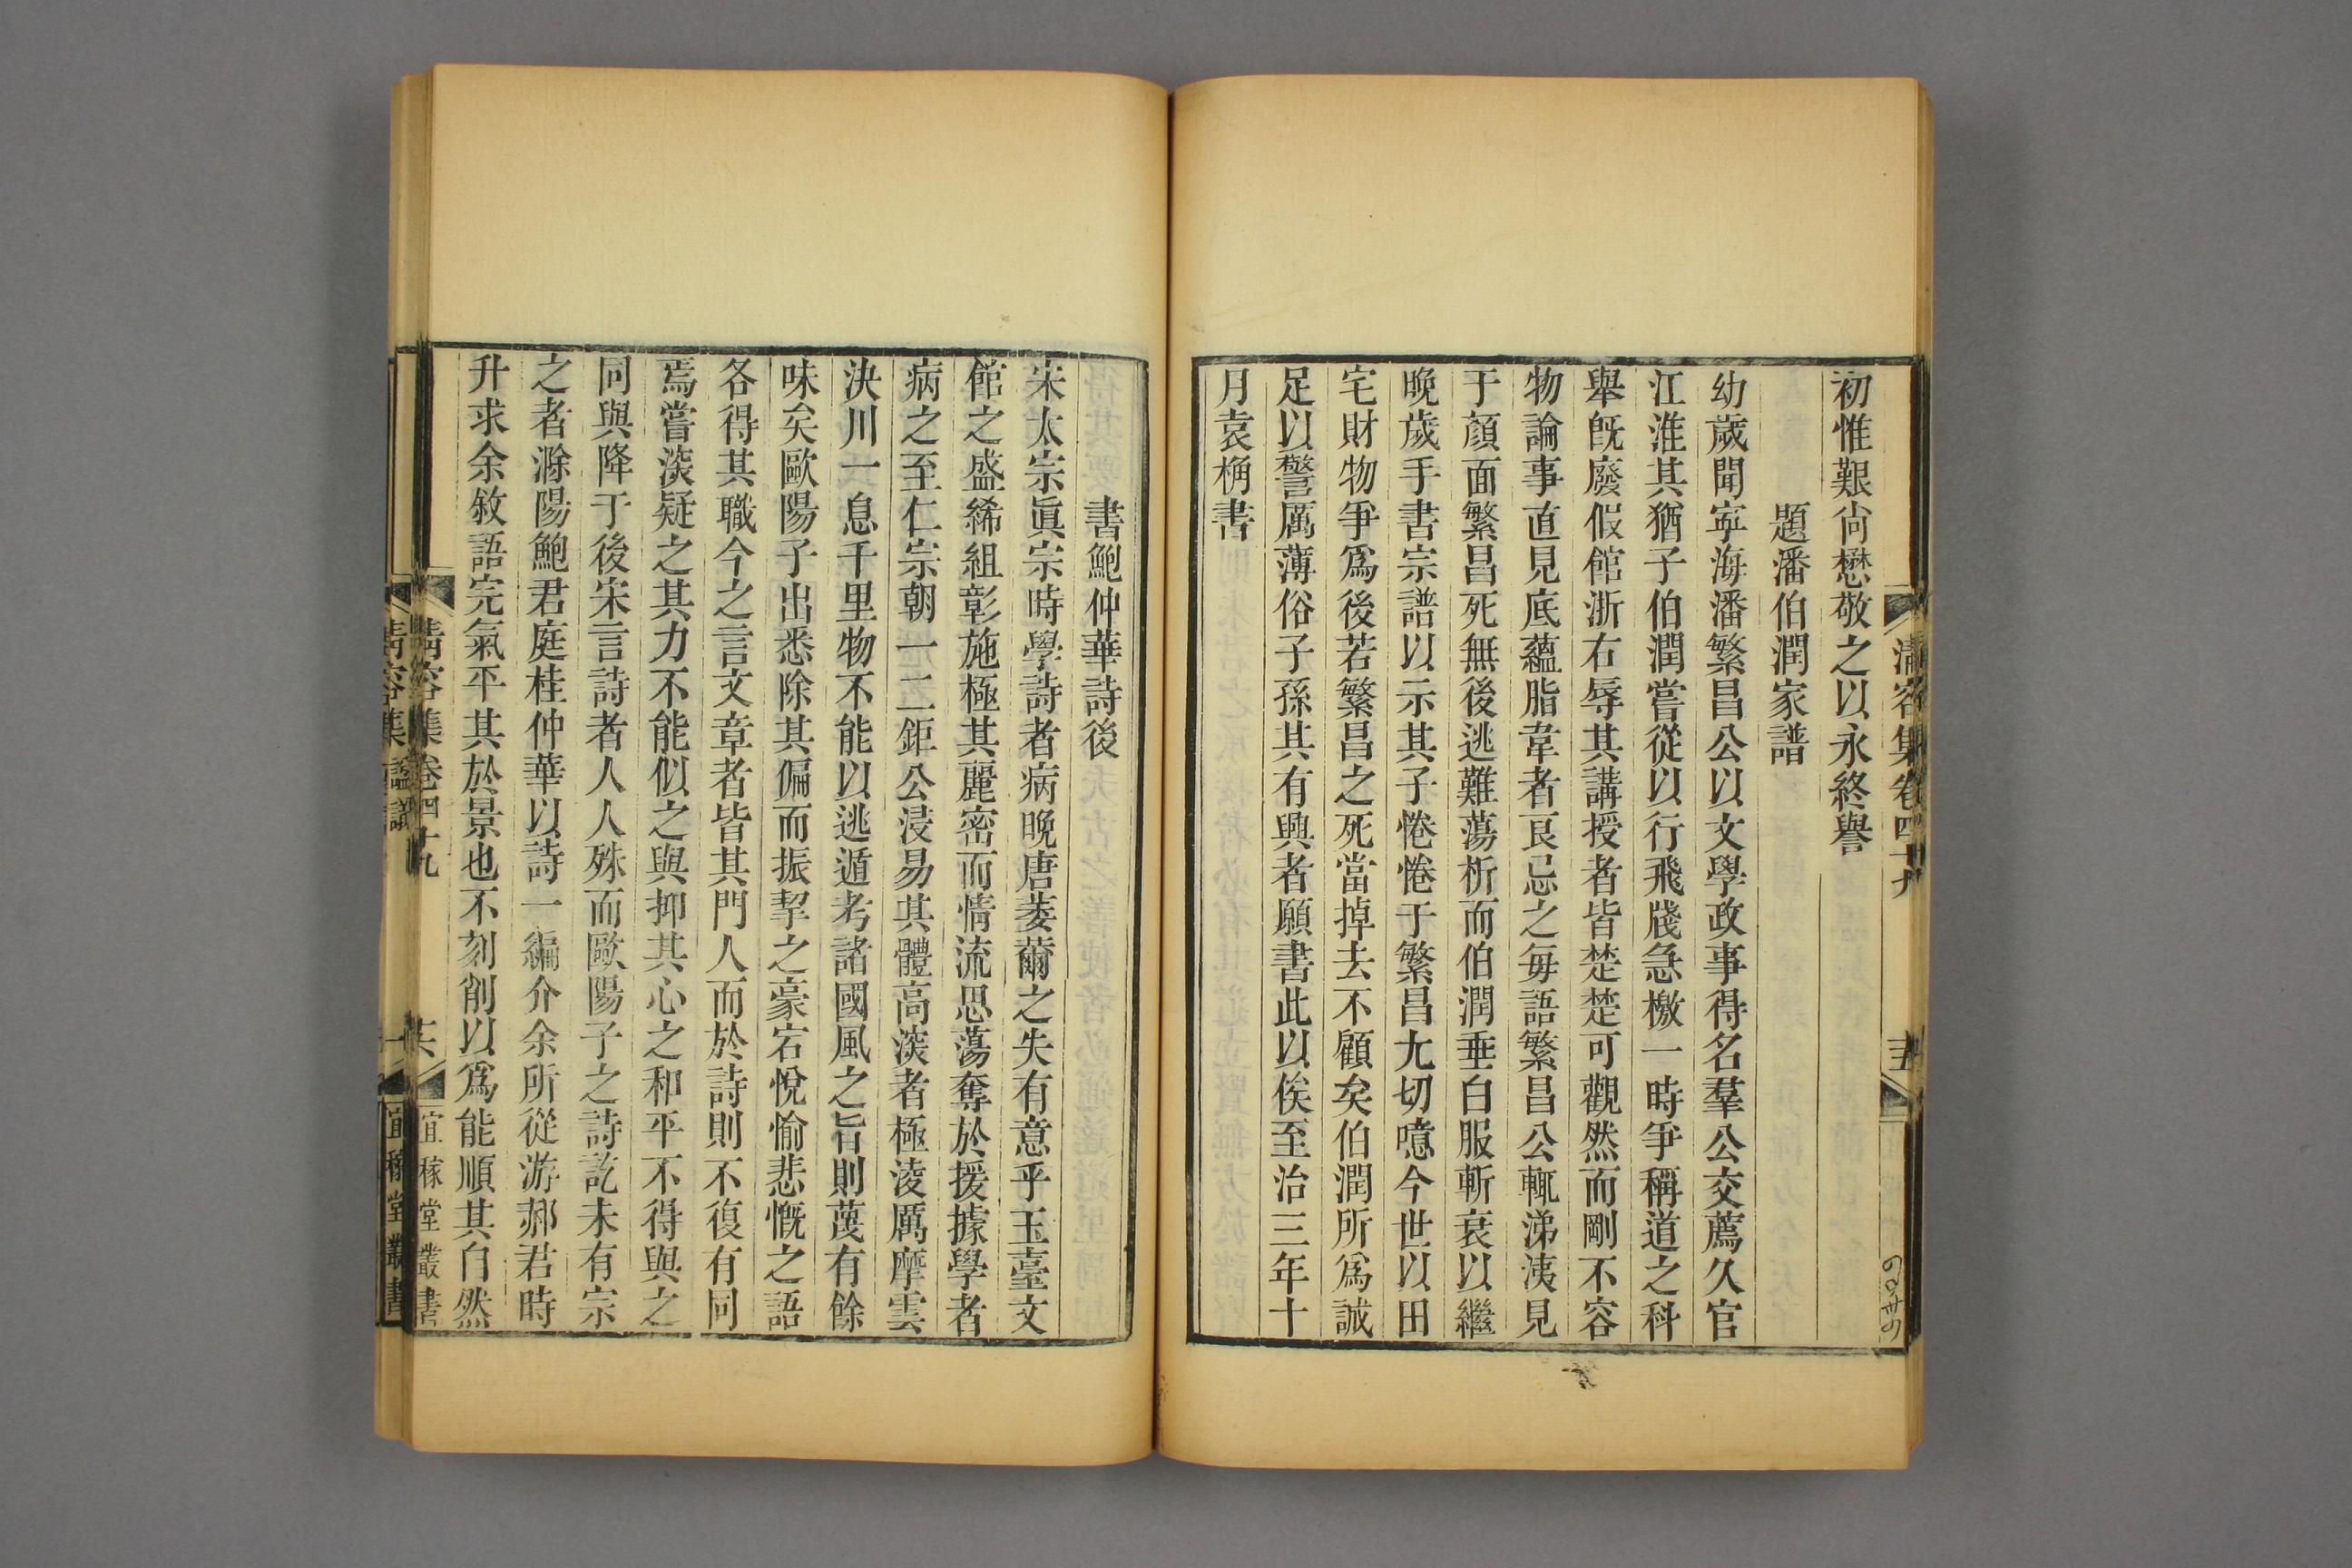 初惟艱尙懋敬之以永終譽
題潘伯潤家譜
幼歲聞寧海潘繁昌公以文學政事得名羣公交薦久官
江淮其猶子伯潤嘗從以行飛牋急檄一時爭稱道之科
舉旣廢假館浙右辱其講授者皆楚楚可觀然而剛不容
物論事直見底蘊脂韋者艮忌之每語繁昌公輒涕洟見
于顏面繁昌死無後逃難蕩析而伯潤垂白服斬衰以繼
晚歲手書宗譜以示其子惓惓于繁昌尢切噫今世以田
宅財物爭爲後若繁昌之死當掉去不顧矣伯潤所爲誠
足以警厲薄俗子孫其有興者願書此以俟至治三年十
月袁桷書
書鮑仲華詩後
宋太宗眞宗時學詩者病晚唐萎薾之失有意乎玉臺文
館之盛絺組彰施極其麗密而情流思蕩奪於援據學者
病之至仁宗朝一二鉅公浸易其體高淡者極淩厲摩雲
決川一息千里物不能以逃遁考諸國風之旨則蔑有餘
味矣歐陽子出悉除其偏而振挈之豪宕悅愉悲慨之語
各得其職今之言文章者皆其門人而於詩則不復有同
焉嘗淡疑之其力不能似之與抑其心之和平不得與之
同與降于後宋言詩者人人殊而歐陽子之詩訖未有宗
之者滁陽鮑君庭桂仲華以詩一編介余所從游郝君時
升求余敘語完氣平其於景也不刻削以爲能順其自然
清容集卷四十九
宜稼堂叢書